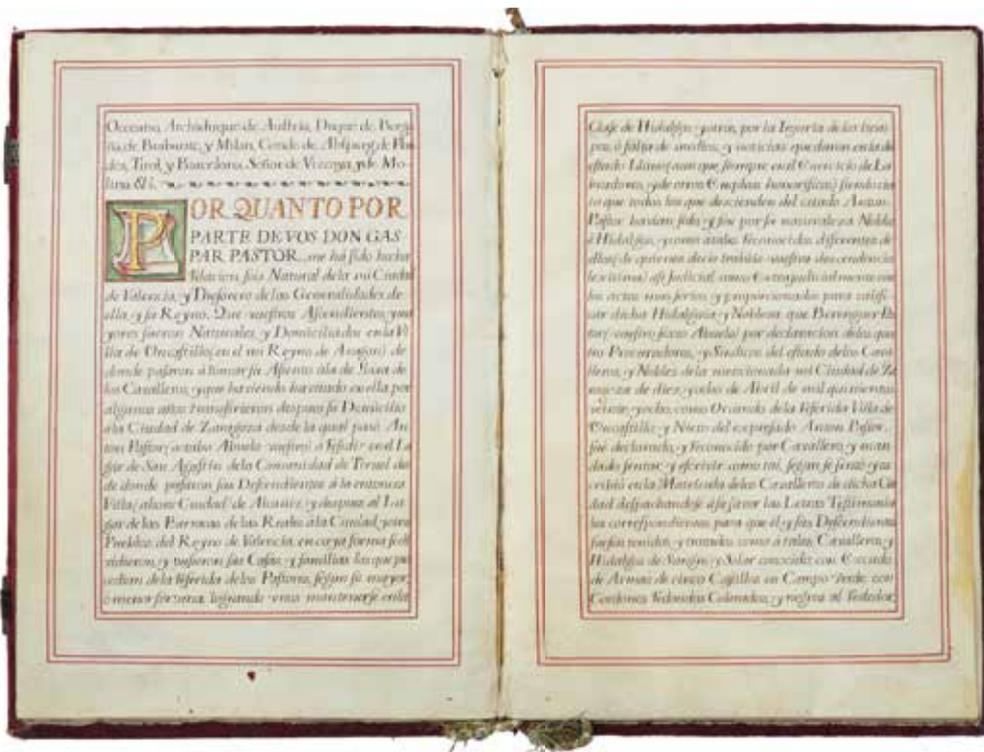 Occeano, Archiduque de Austria, Duque de Borgo-
ña de Brabante, y Milan, Conde de Abspurg, de Flan-
des, Tirol, y Barcelona, Señor de Vizcaya, y de Mo-
lina &c.
POR QUANTO POR
PARTE DE VOS DON GAS-
PAR PASTOR, me há sido hecha
Relacion sois Natural de la mi Ciudad
de Valencia, y Thesorero de las Generalidades de
ella, y su Reyno. Que vuestros Ascendientes, y ma-
yores fueron Naturales, y Domiciliados en la Vi-
lla de Oncastillo, en el mi Reyno de Aragon, de
donde pasaron á tomar su Asiento á la de Exea de
los Cavalleros, y que haviendo havitado en ella por
algunos años transfirieron despues su Domicilio
á la Ciudad de Zaragoza desde la qual pasó An-
ton Pastor, octabo Abuelo vuestro á Residir en el Lu-
gar de San Agustin de la Comunidad de Teruel de
de donde pasaron sus Descendientes á la entonces
Villa, ahora Ciudad de Alicante, y despues al Lu-
gar de las Barracas, de las Reales á la Ciudad, y otros
Pueblos del Reyno de Valencia, en cuya forma se di-
vidieron, y tubieron sus Casas, y familias las que pro-
cedian de la referida de los Pastores, segun su mayor,
o menor fortuna, logrando unos mantenerse en la
Clase de Hidalgos, y otros, por la Injuria de los tiem-
pos, ó falta de medios, y noticias quedaron en la de
estado Llano, aunque siempre en el Exercicio de La-
bradores, y de otros Empleos honorificos, siendo cier-
to que todos los que descienden del citado Anton
Pastor havian sido, y son por su naturaleza Nobles
é Hidalgos, y como á tales Reconocidos diferentes de
ellos, de quienes decia trahia vuestra descendencia
lexitima, asi Judicial, como Extrajudicialmente con
los actos mas serios, y proporcionados para calific-
ar dicha Hidalguia, y Nobleza, que Berenguer Pas-
tor, vuestro Abuelo, por declaracion de los qua-
tro Procuradores, y Sindicos del estado de los Cava-
lleros, y Nobles de la mencionada mi Ciudad de Za-
ragoza de diez, y ocho de Abril de mil quinientos
veinte, y ocho, como Oriundo de la referida Villa de
Oncastillo, y Nieto del expresado Anton Pastor,
fué declarado, y reconocido por Cavallero, y man-
dado sentar, y escrivir como tal, segun se sentó, y es-
crivió en la Matricula de los Cavalleros de dicha Ciu-
dad despachandose á su favor las Letras Testimonia-
les correspondientes para que él, y sus Descendientes
fuesen tenidos, y tratados como á tales Cavalleros, y
Hidalgos de Sangre, y Solar conocido, con Escudo
de Armas de cinco Castillos en Campo Verde, con
Cordones Redondos Colorados, y negros al Rededor,